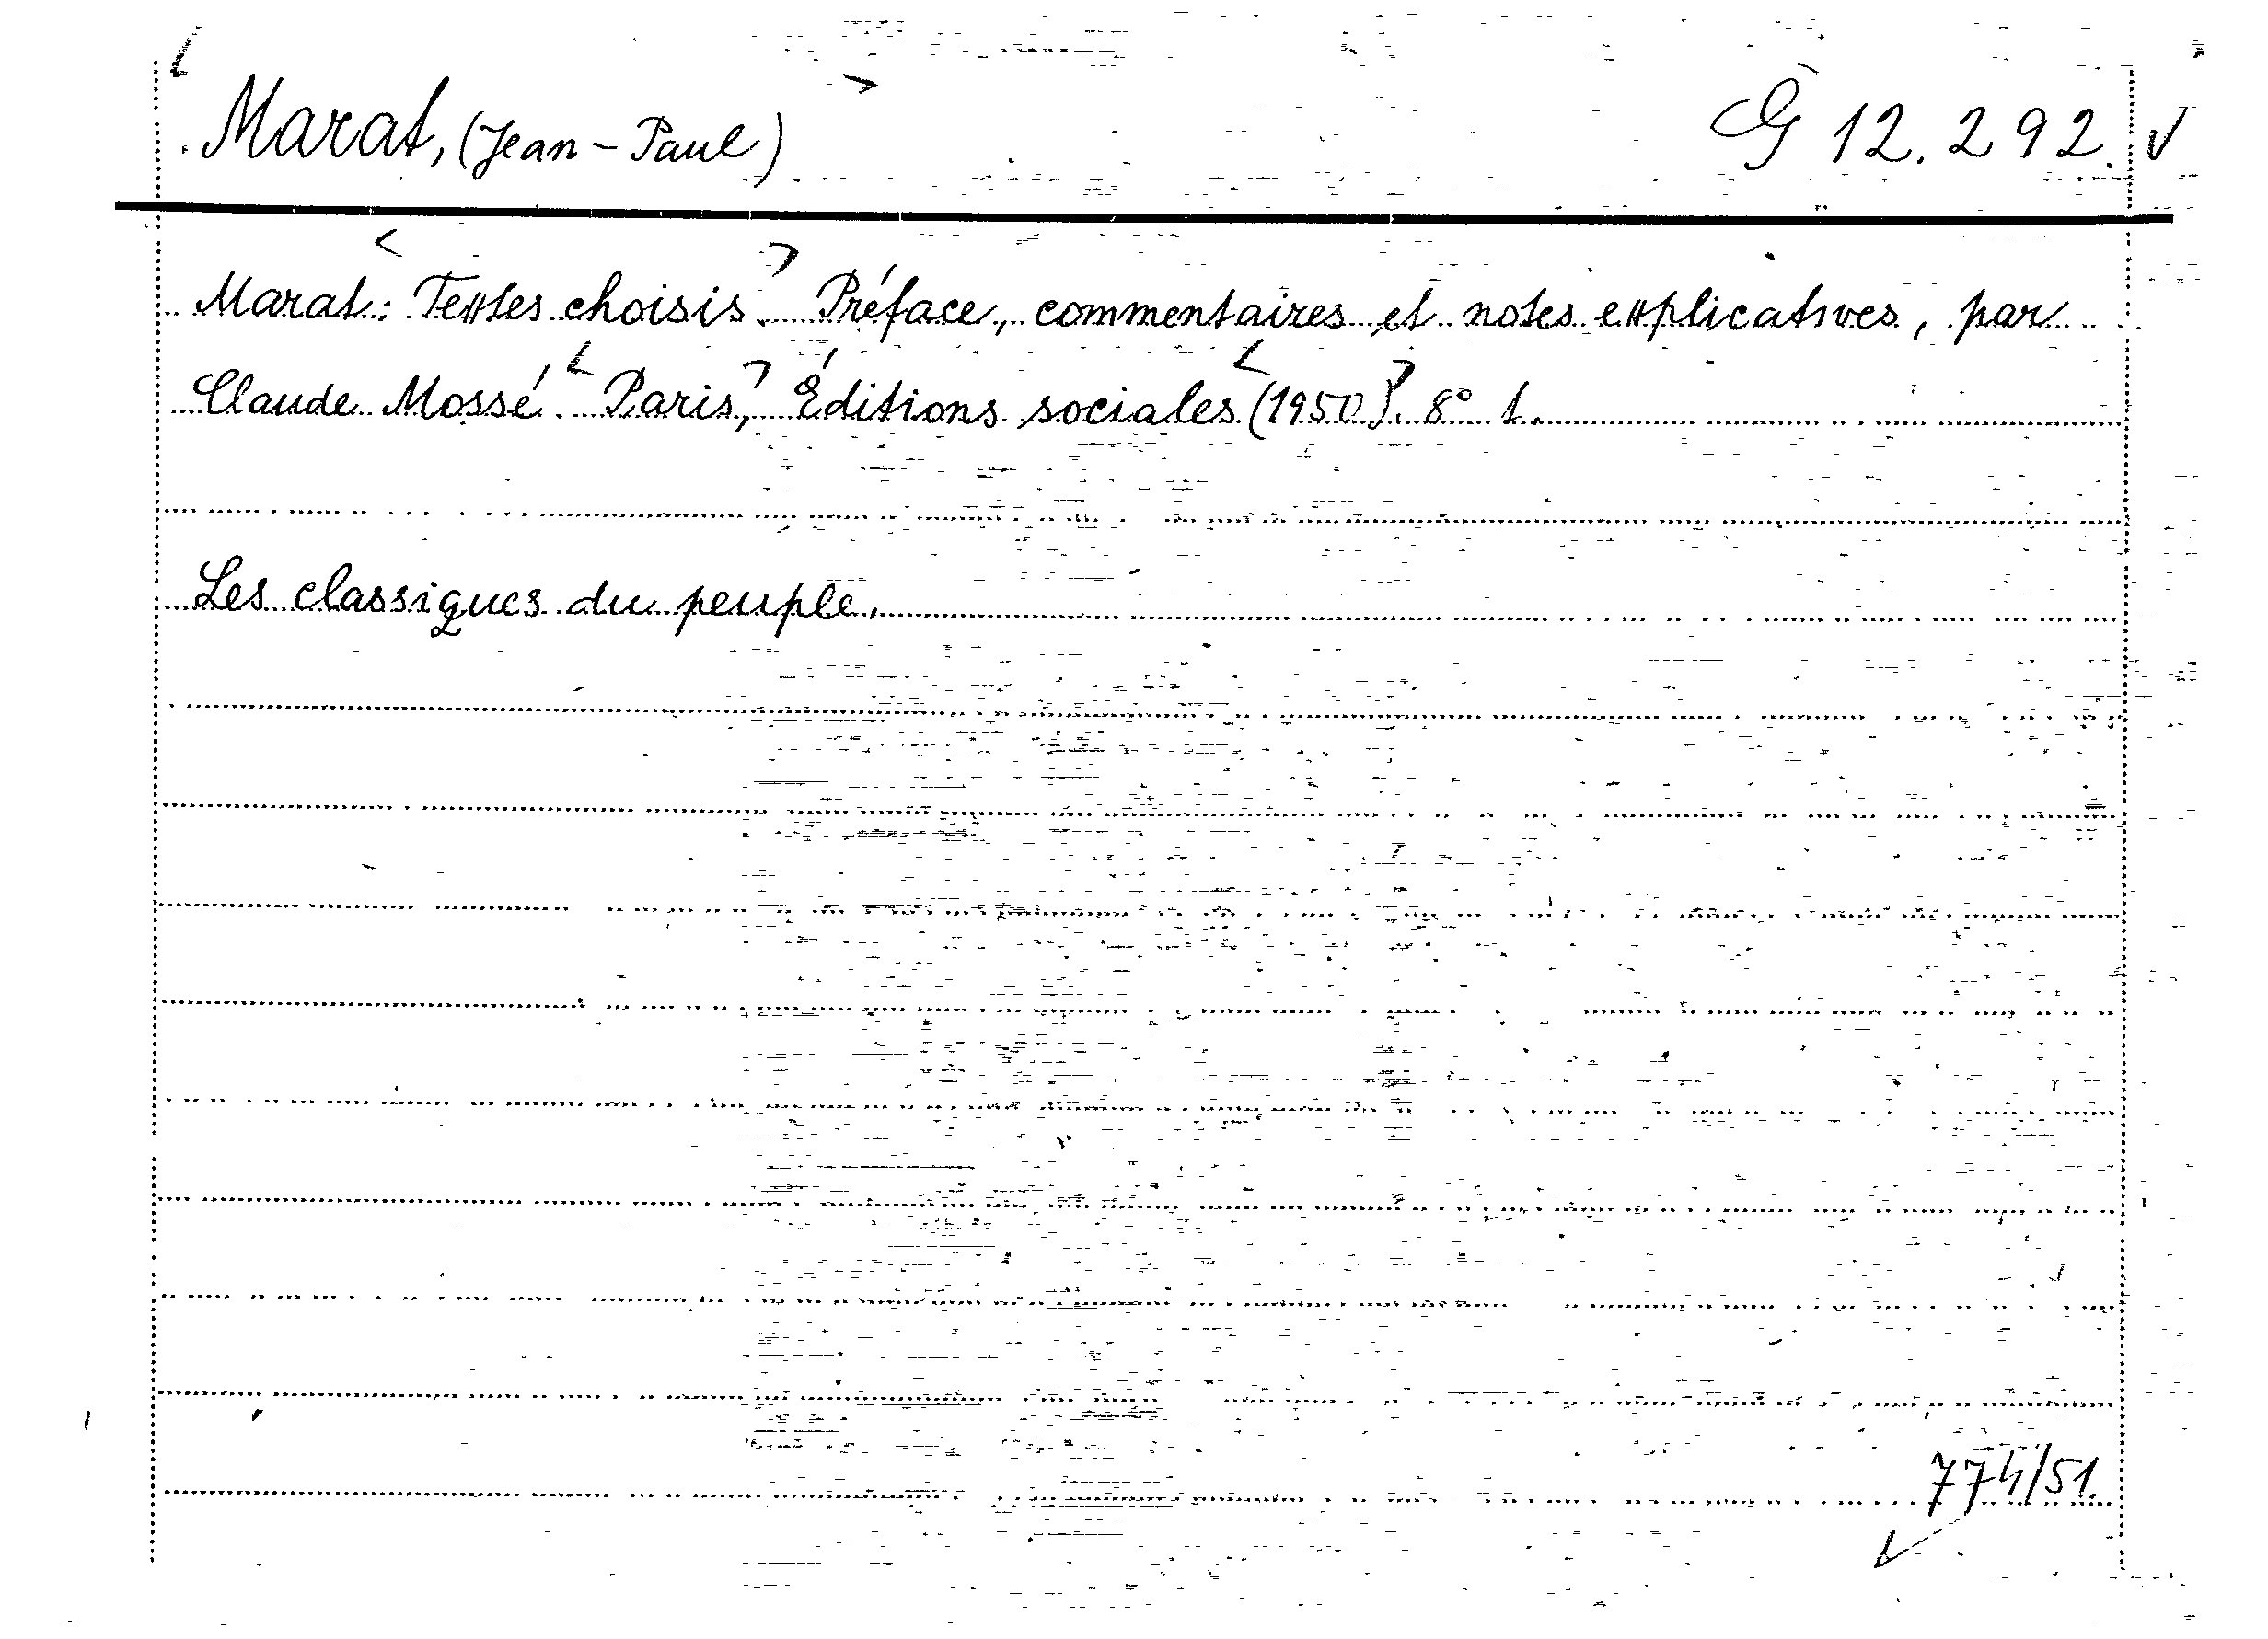 Marat, (Jean-Paul) G 12.292.
Marat: Textes choisis. Préface, commentaires et notes explicatives, par
Claude Mossé. Paris, Éditions sociales (1950). 8° 1.
Les classiques du peuple.
774/51.